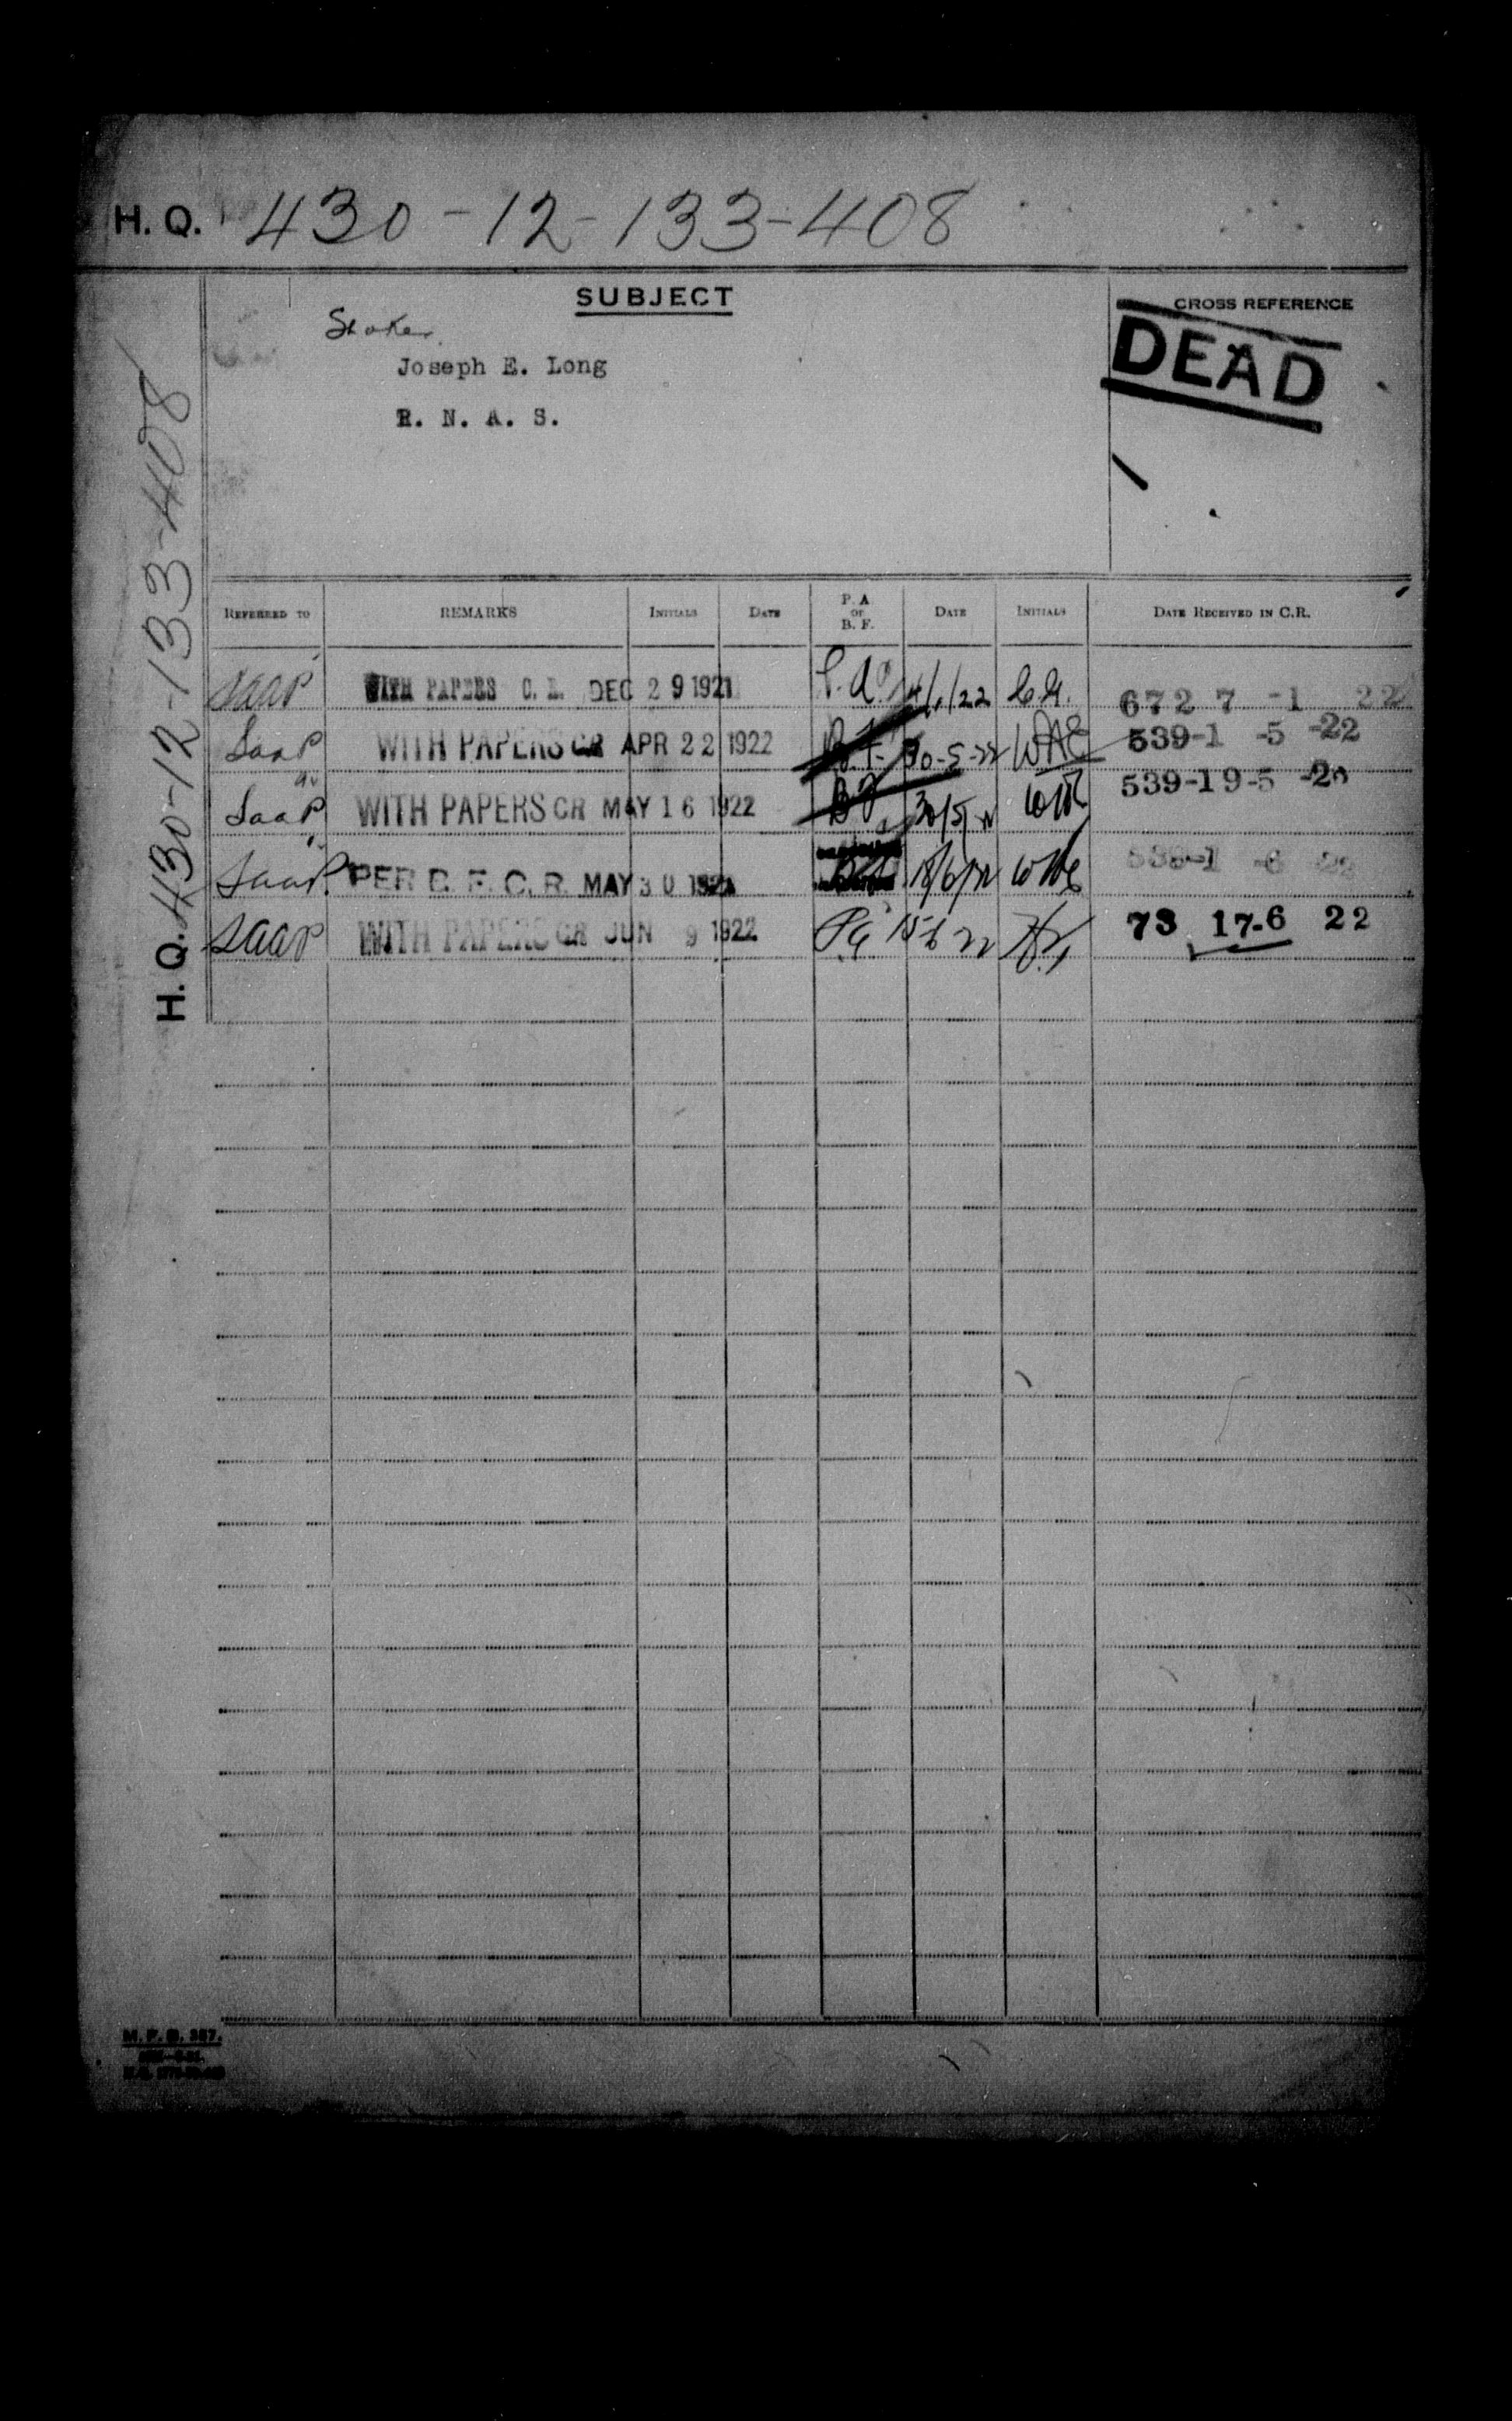 H. Q. 430-12-133-408
SUBJECT
CROSS REFERENCE
Stoker
Joseph E. Long
R. N. A. S.
DEAD
H. Q. 430-12-133-408
REFERRED TO REMARKS INITIALS DATE P. A OR B. F. DATE INITIALS DATE RECEIVED IN C.R.
SAAP WITH PAPERS C. R. DEC 29 1921 P.A. 4/1/22 672 7 -1 22
SaaP WITH PAPERS CR APR 22 1922 B.F. 30-5-22 WAE 539-1 -5 -22
SaaP WITH PAPERS CR MAY 16 1922 BF 30/5/22 539-19-5
SaaP. PER B. F. C. R. MAY 30 539-1 -6 22
SAAP WITH PAPERS CR JUN 9 1922 PA 15-6-22 73 17-6 22